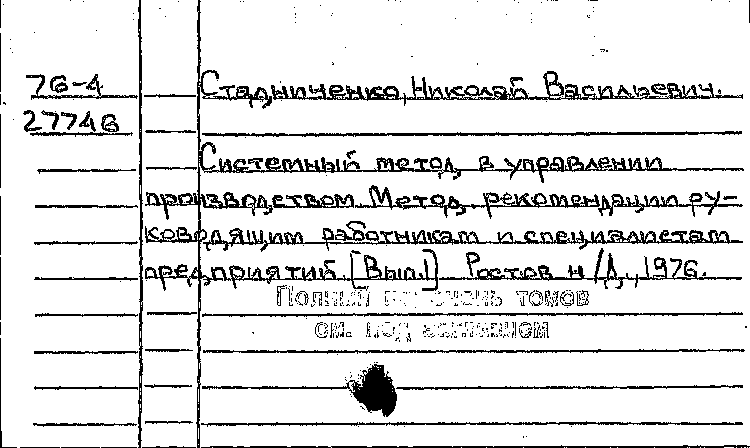 76-4 Стадниченко, Николай Васильевич.
27746
Системный метод в управлении
производством. Метод. рекомендации ру-
ководящим работникам и специалистам
предприятий. [Вып.] Ростов н/Д., 1976.
Полный перечень томов
см. под заглавием